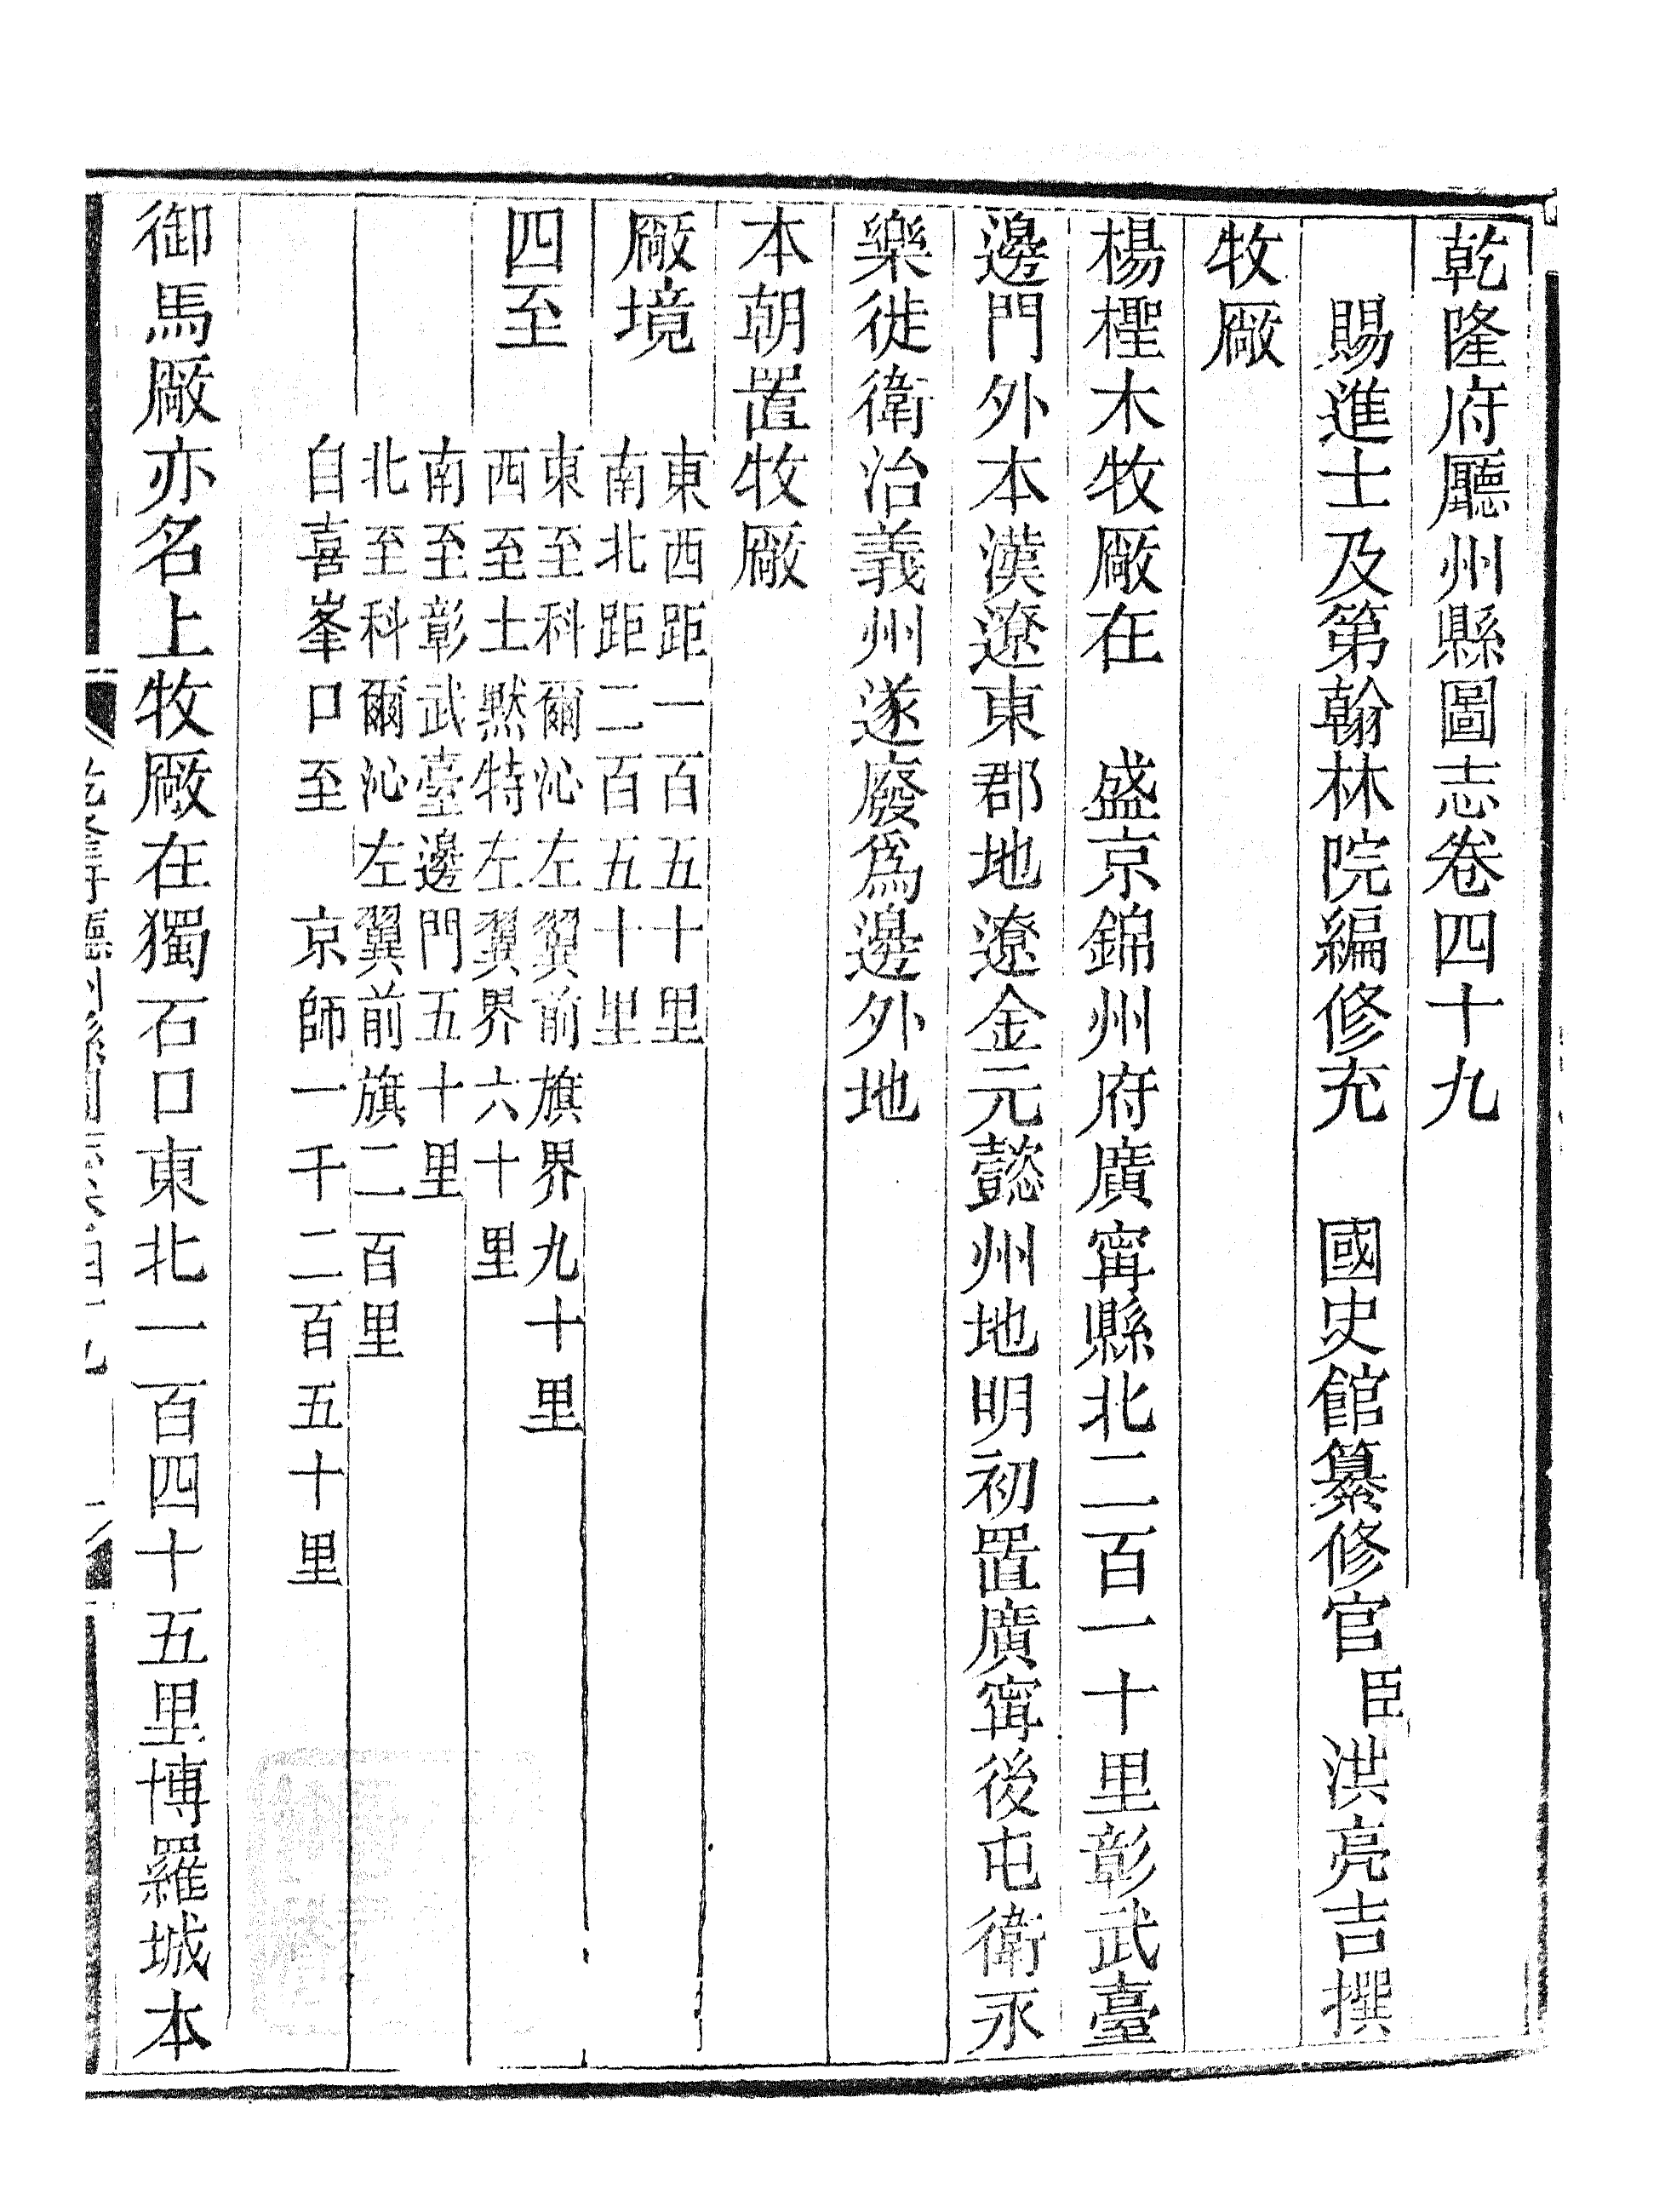 乾隆府廳州縣圖志卷四十九
賜進士及第翰林院編修充　國史館纂修官臣洪亮吉撰
牧厰
楊檉木牧厰在　盛京錦州府廣甯縣北二百一十里彰武臺
邊門外本漢遼東郡地遼金元懿州地明初置廣甯後屯衛永
樂徙衛治義州遂廢爲邊外地
本朝置牧厰
厰境
東西距一百五十里
南北距二百五十里
四至
東至科爾沁左翼前旗界九十里
西至土黙特左翼界六十里
南至彰武臺邊門五十里
北至科爾沁左翼前旗二百里
自喜峯口至　京師一千二百五十里
御馬厰亦名上牧厰在獨石口東北一百四十五里博羅城本